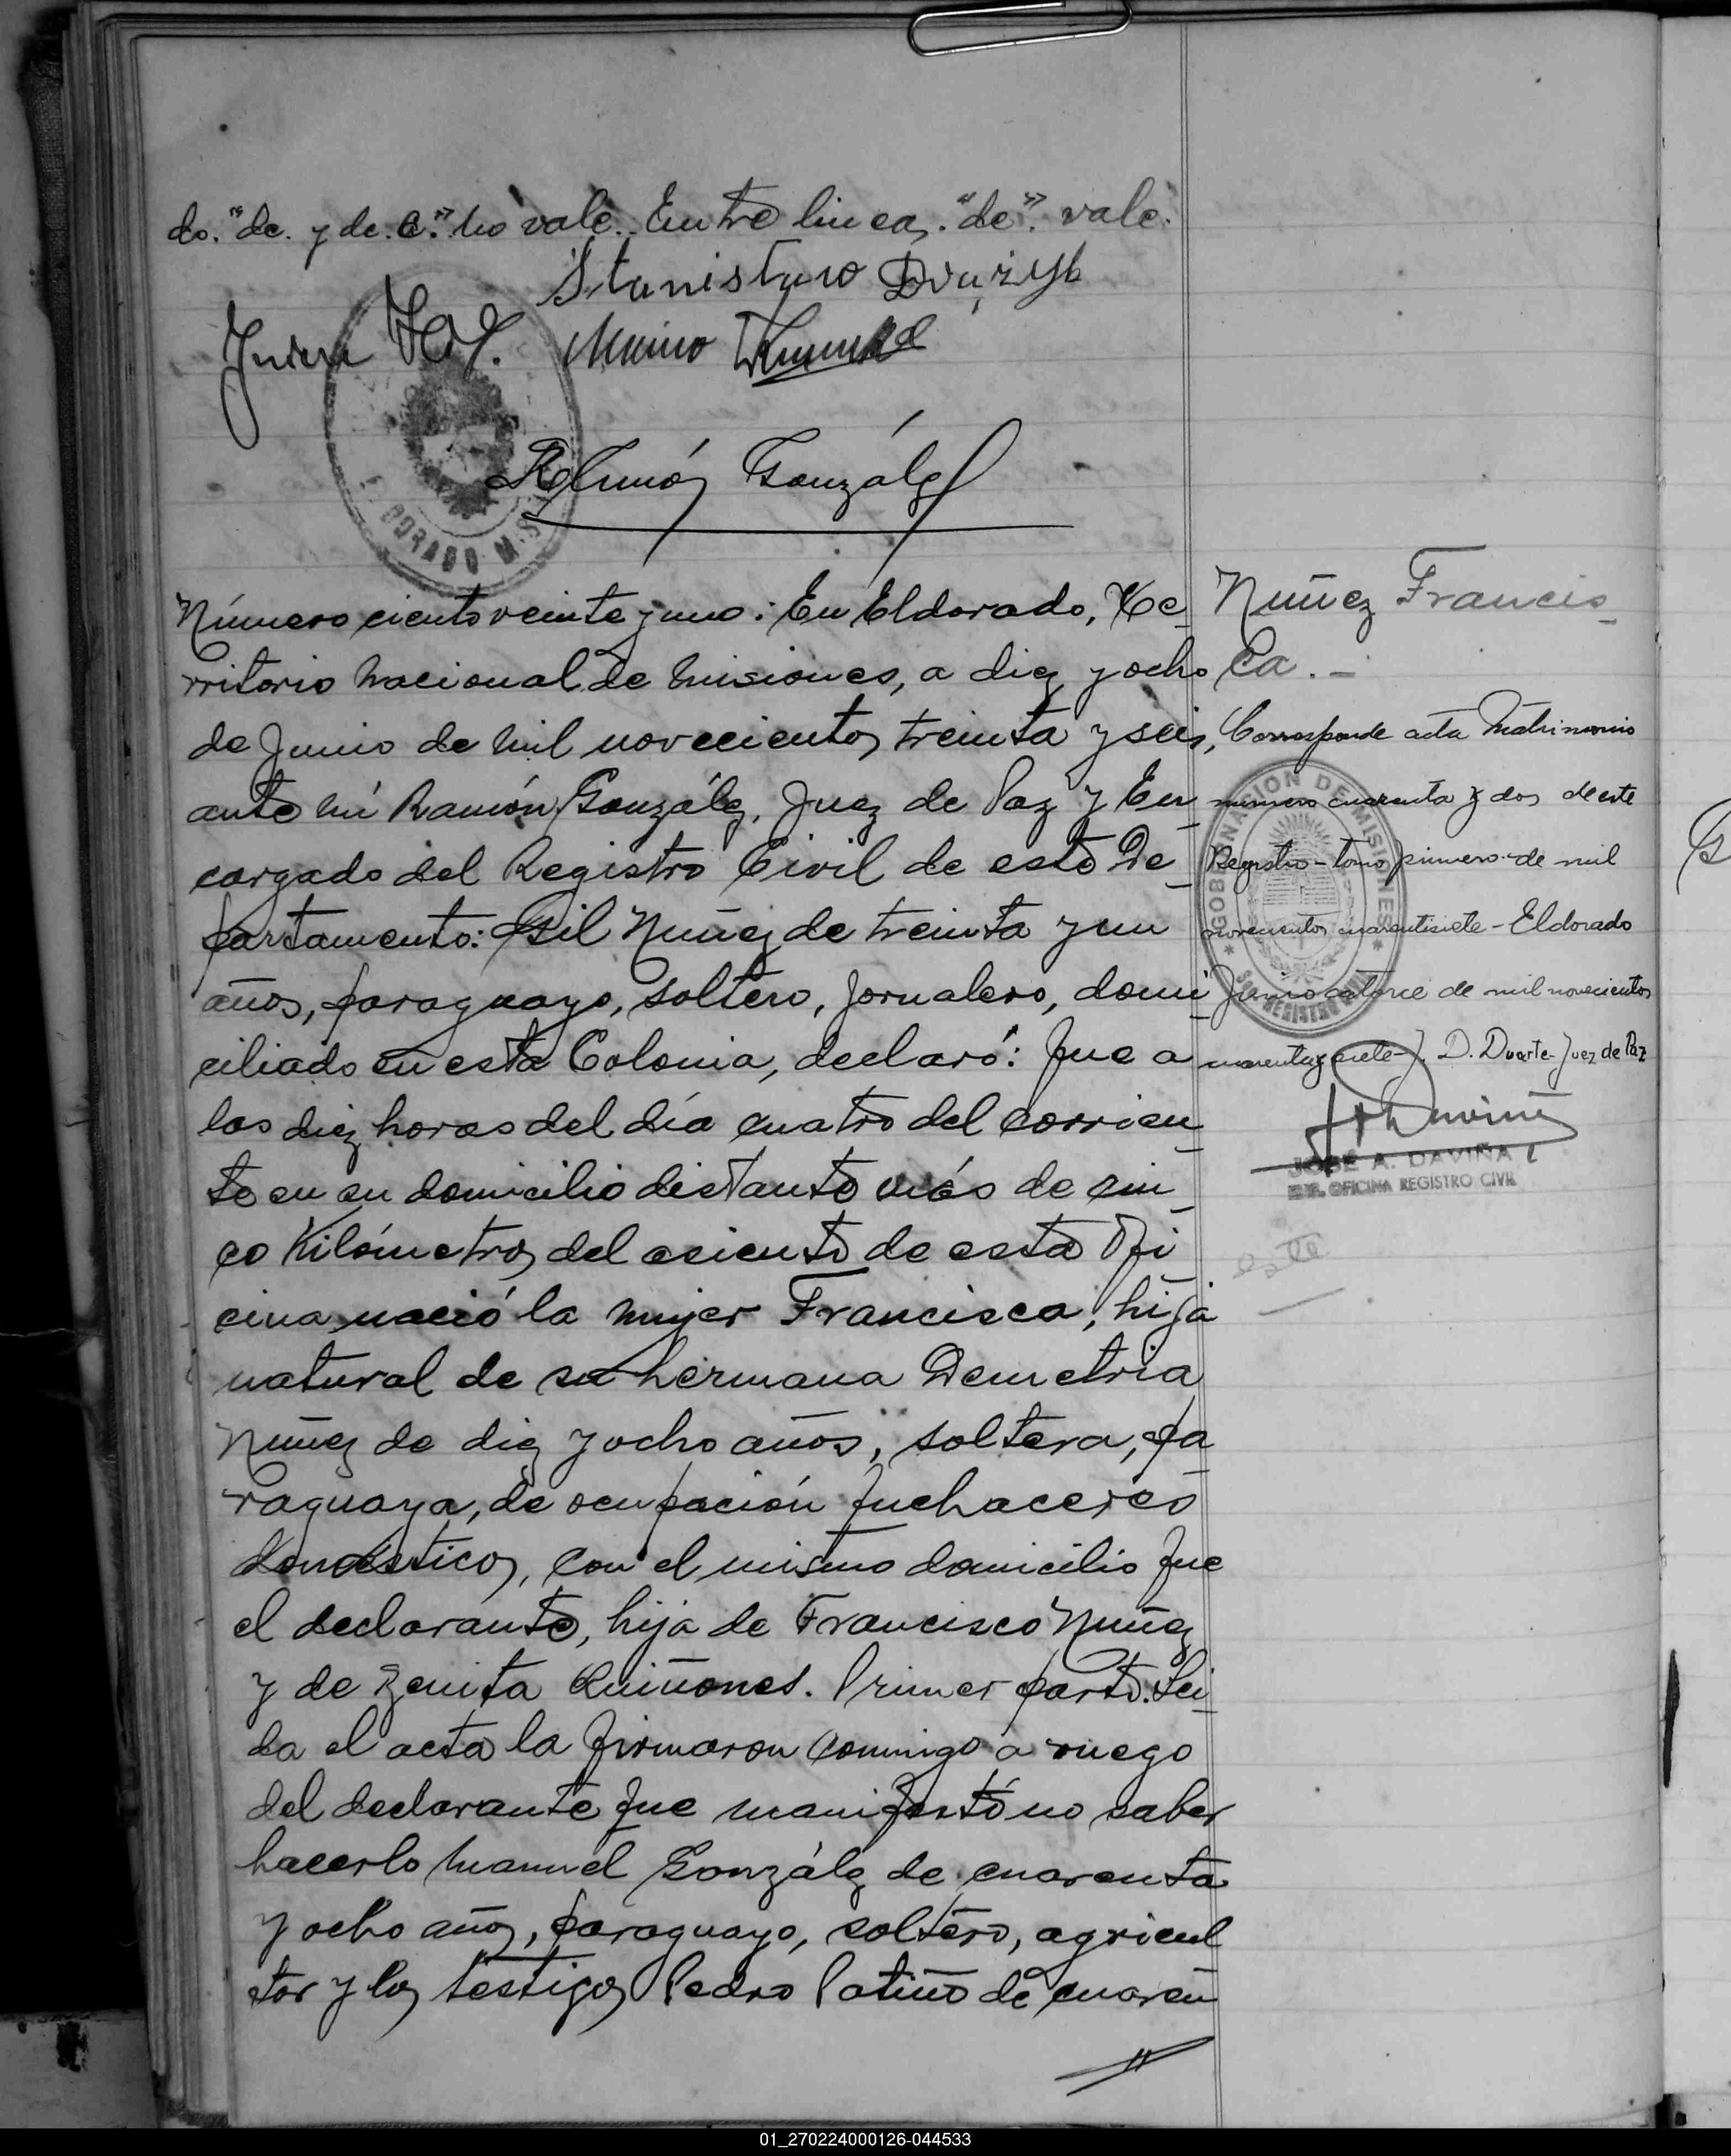 do. "de. y de. C." no vale. Entre linea. "de". vale.
Ramón González
ELDORADO M-S
Número ciento veinte y uno: En Eldorado, Te_
rritorio Nacional de Misiones, a diez y ocho
de Junio de mil novecientos treinta y seis,
ante mí Ramón González, Juez de Paz y En_
cargado del Registro Civil de este De_
partamento: Gil Nuñez de treinta y un
años, paraguayo, soltero, jornalero, domi_
ciliado en esta Colonia, declaró: Que a
las diez horas del día cuatro del corrien_
te en su domicilio distante más de cin_
co Kilómetros del asiento de esta Ofi_
cina, nació la mujer Francisca, hija
natural de su hermana Demetria
Nuñez de diez y ocho años, soltera, pa_
raguaya, de ocupación quehaceres
domésticos, con el mismo domicilio que
el declarante, hija de Francisco Nuñez
y de Zenita Quiñones. Primer parto. Lei_
da el acta la firmaron conmigo a ruego
del declarante que manifestó no saber
hacerlo Manuel González de cuarenta
y ocho años, paraguayo, soltero, agricul_
tor y los testigos Pedro Patiño de cuaren_
Nuñez Francis_
ca.-
Corresponde acta Matrimonio
número cuarenta y dos de este
Registro - tomo primero - de mil
novecientos cuarentisiete - Eldorado
Junio catorce de mil novecientos
cuarenta y siete - J. D. Duarte - Juez de Paz
GOBERNACION DE MISIONES
REGISTRO CIVIL
JOSE A. DAVIÑA
OFICINA REGISTRO CIVIL
este
01_270224000126-044533